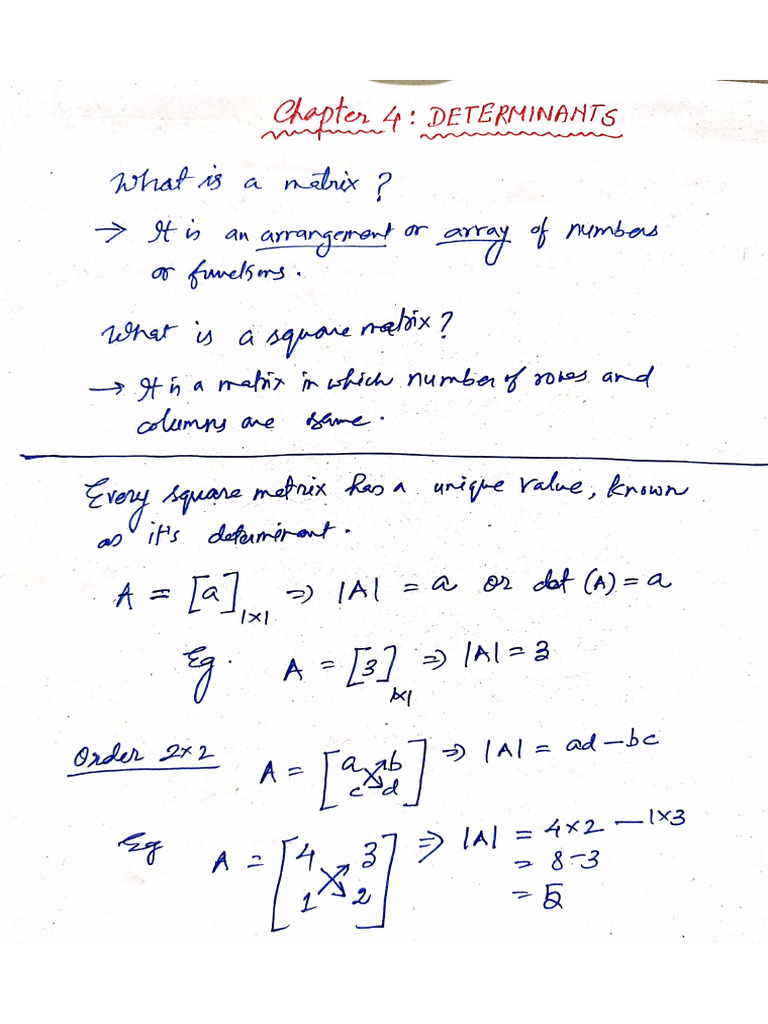 Chapter 4: DETERMINANTS
What is a matrix?
→ It is an arrangement or array of numbers
or functions.
What is a square matrix?
→ It is a matrix in which number of rows and
columns are same.
Every square matrix has a unique value, known
as it's determinant.
A = [a]1×1 ⇒ |A| = a or det (A) = a
Eg. A = [3]1×1 ⇒ |A| = 3
Order 2×2 A = [a b ⇒ |A| = ad - bc
c d]
Eg A = [4 3 ⇒ |A| = 4×2 - 1×3
1 2] = 8-3
= 5